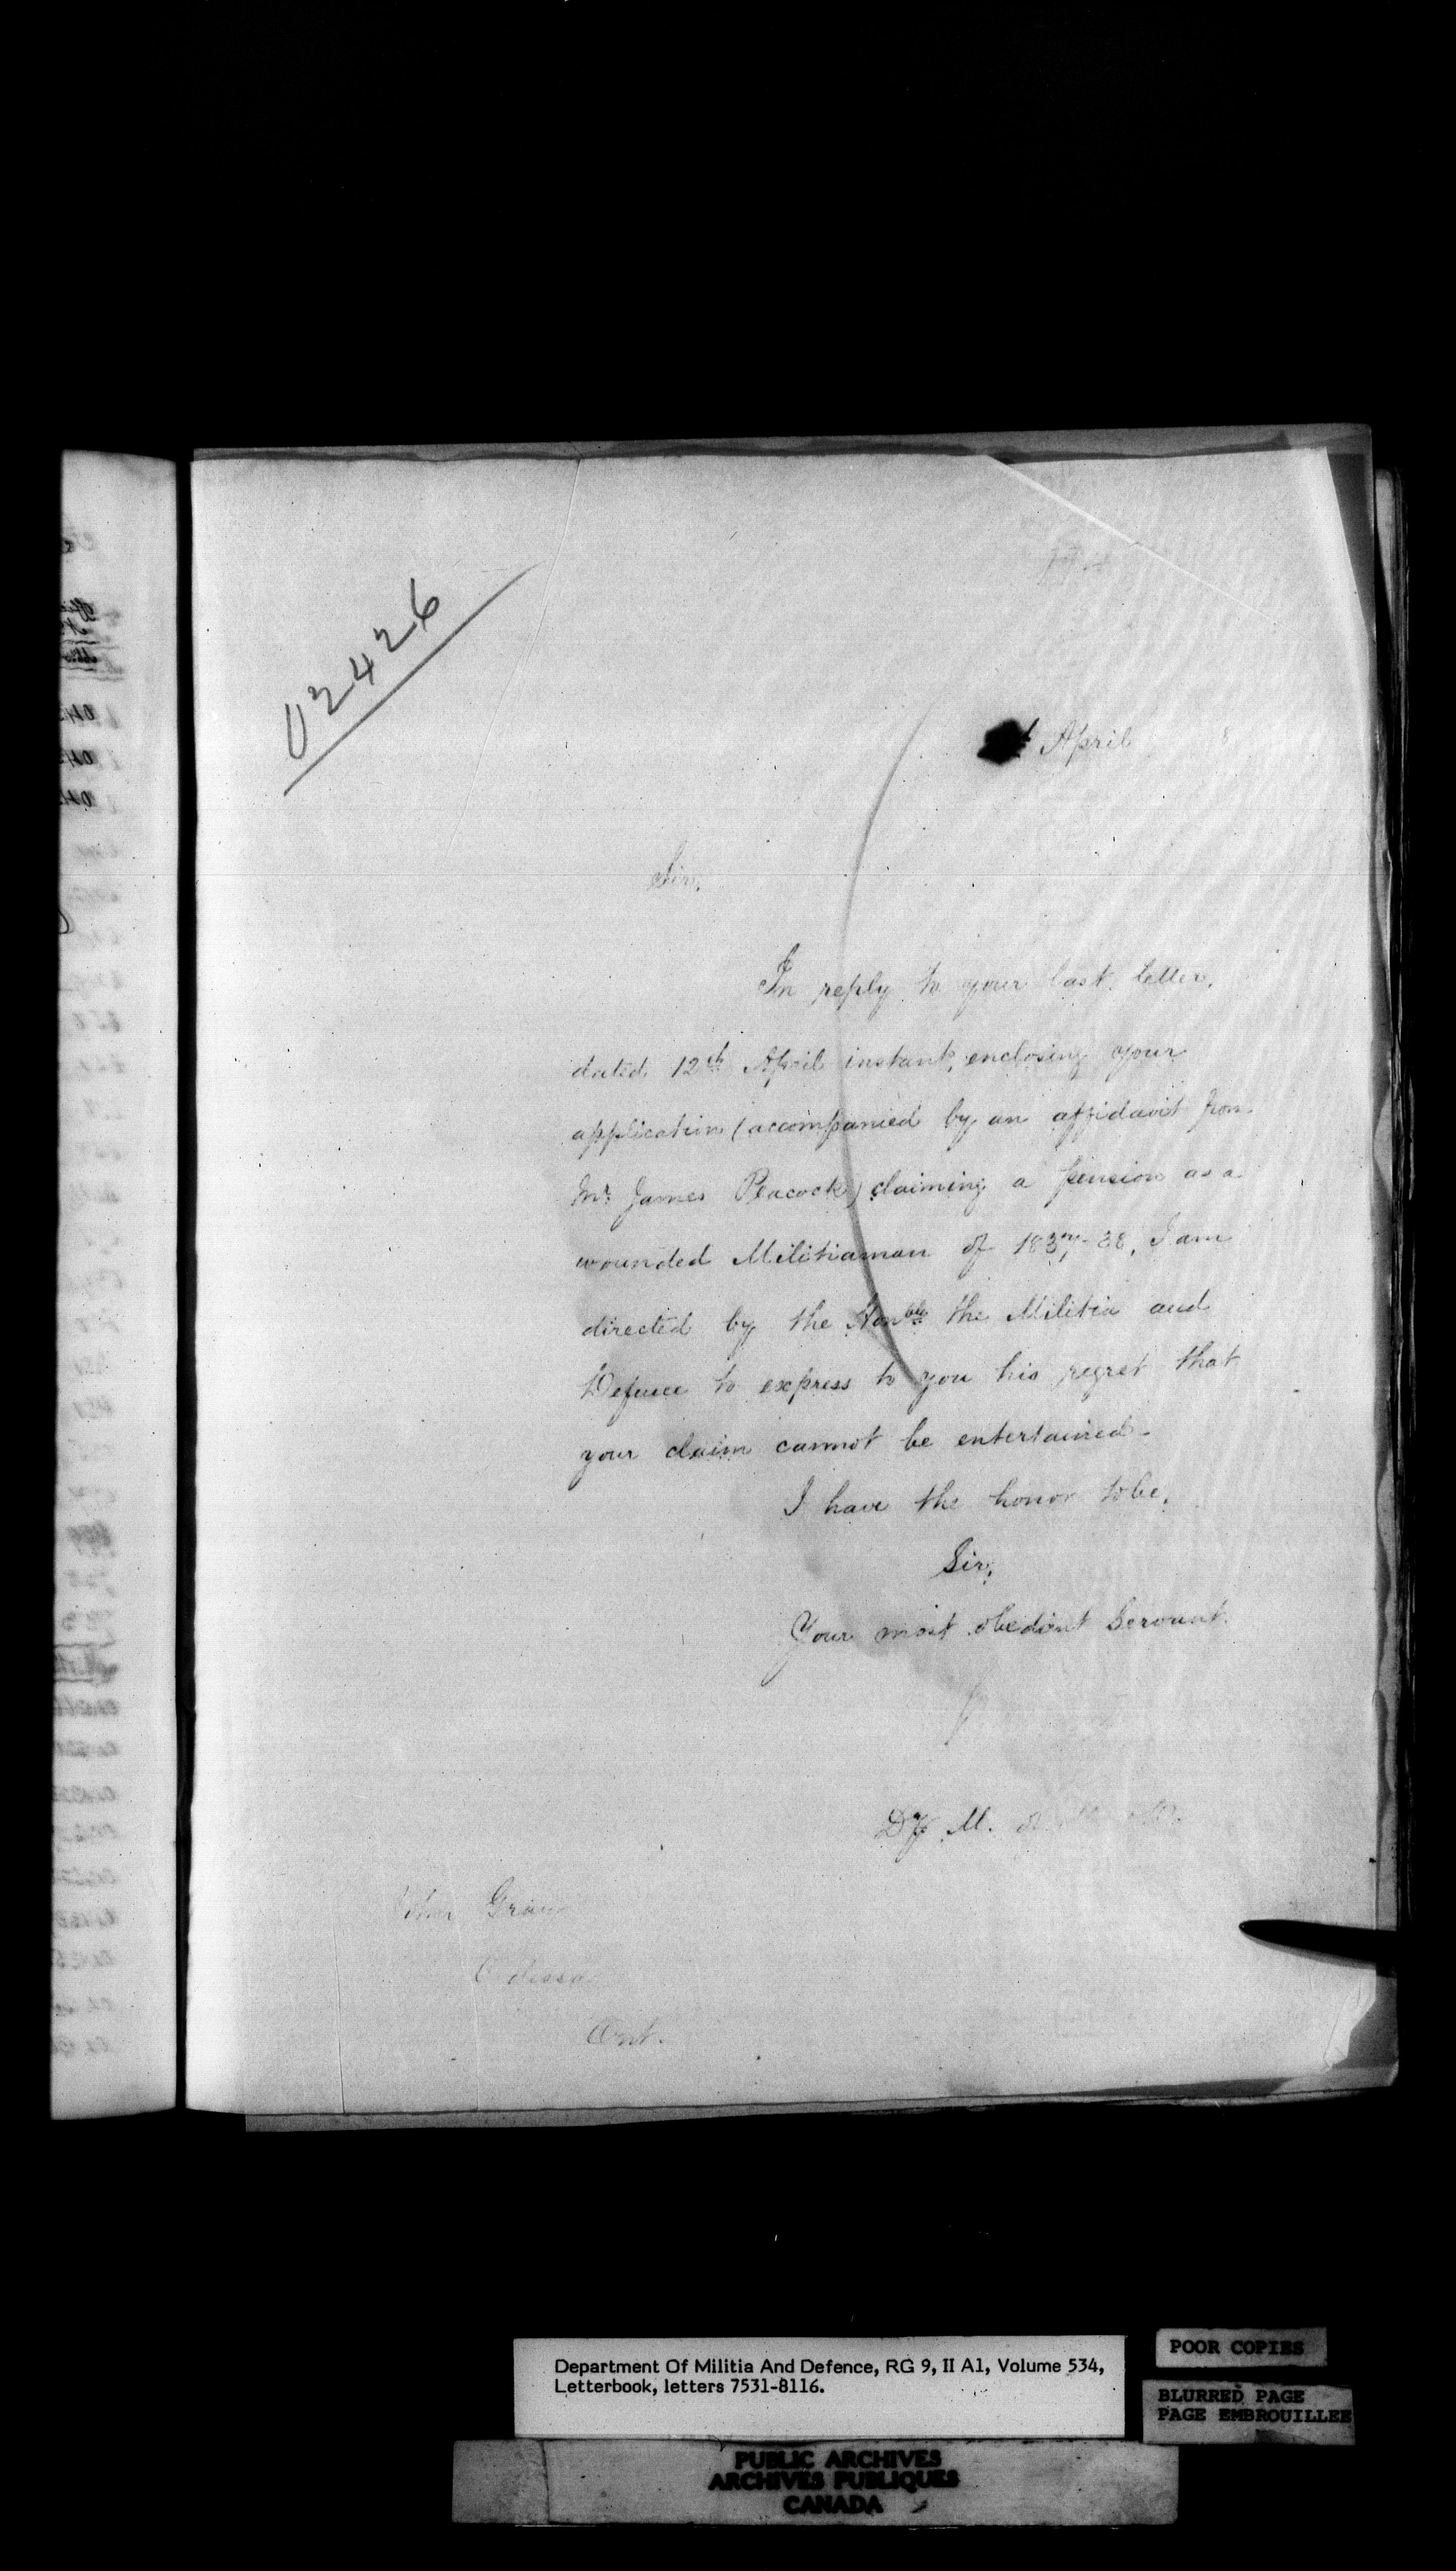 02426
April
Sir,
In reply to your last letter,
dated 12th April instant, enclosing your
application (accompanied by an affidavit from
Mr. James Peacock) claiming a pension as a
wounded Militiaman of 1837-38, I am
directed by the Honble the Militia and
Defence to express to you his regret that
your claim cannot be entertained.
I have the honor to be,
Sir,
Your most obedient Servant.
Dy. M. of
Odessa
Ont.
Department Of Militia And Defence, RG 9, II A1, Volume 534,
Letterbook, letters 7531-8116.
POOR COPIES
BLURRED PAGE
PAGE EMBROUILLEE
PUBLIC ARCHIVES
ARCHIVES PUBLIQUES
CANADA